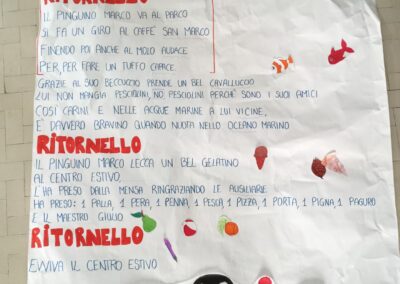 RITORNELLO
IL PINGUINO MARCO VA AL PARCO
SI FA UN GIRO AL CAFFÈ SAN MARCO
FINENDO POI ANCHE AL MOLO AUDACE
PER, PER FARE UN TUFFO CAPACE.
GRAZIE AL SUO BECCUCCIO PRENDE UN BEL CAVALLUCCIO
LUI NON MANGIA PESCIOLINI, NO, PESCIOLINI PERCHÈ SONO I SUOI AMICI
COSÌ CARINI E NELLE ACQUE MARINE A LUI VICINE,
E DAVVERO BRAVINO QUANDO NUOTA NELLO OCEANO MARINO
RITORNELLO
IL PINGUINO MARCO LECCA UN BEL GELATINO
AL CENTRO ESTIVO,
L'HA PRESO DALLA MENSA RINGRAZIANDO LE AUSILIARIE.
HA PRESO: 1 PALLA, 1 PERA, 1 PENNA, 1 PESCA, 1 PIZZA, 1 PORTA, 1 PIGNA, 1 PAGURO
E IL MAESTRO GIULIO
RITORNELLO
EVVIVA IL CENTRO ESTIVO